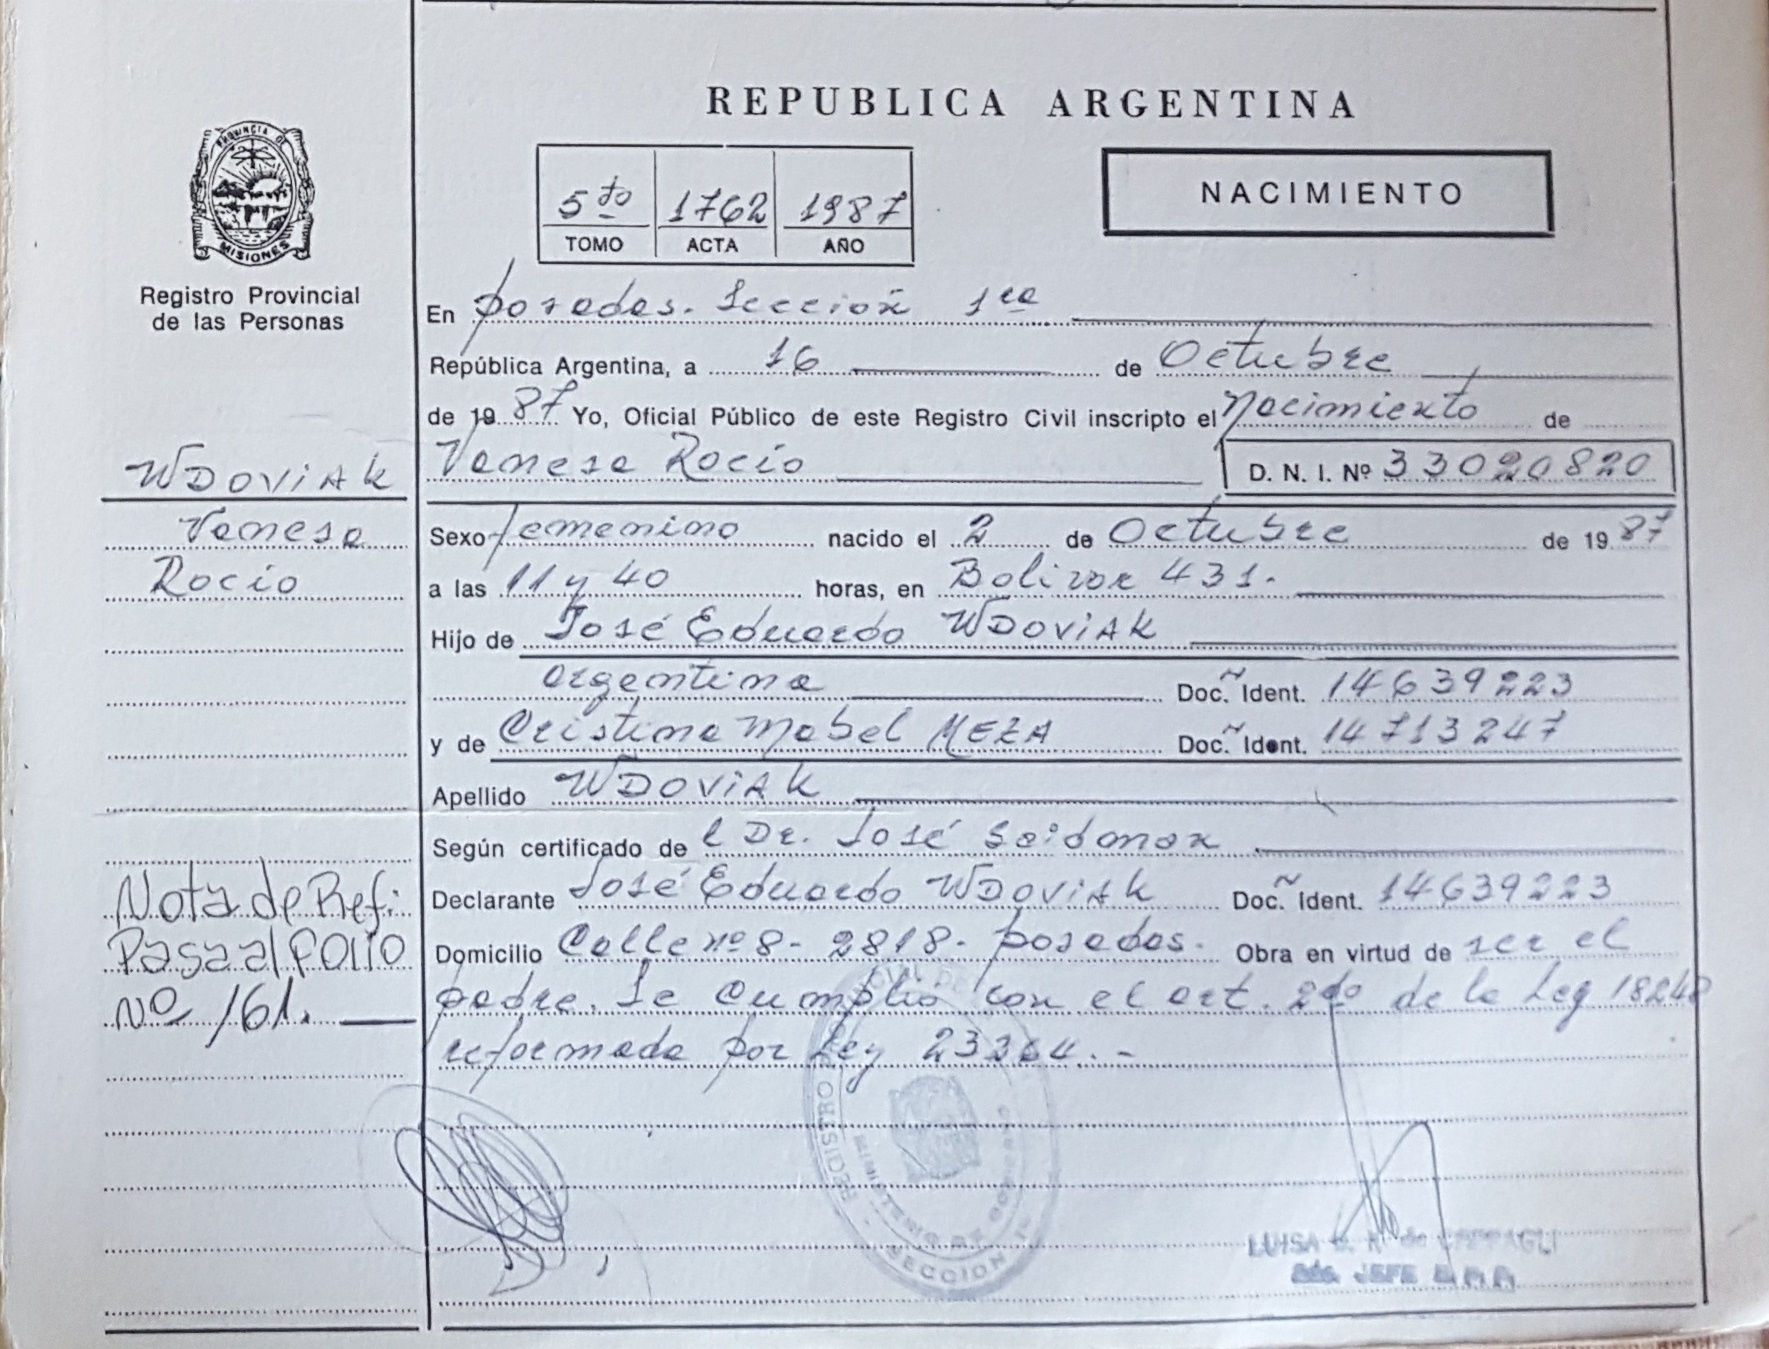 REPUBLICA ARGENTINA
PROVINCIA DE
MISIONES
Registro Provincial
de las Personas
5to 1762 1987
TOMO ACTA AÑO
NACIMIENTO
En Posadas. Sección 1ra
República Argentina, a 16 de Octubre
de 1987 Yo, Oficial Público de este Registro Civil inscripto el Nacimiento de
Vanesa Rocío D. N. I. Nº 33020820
WDOViAK
Vanesa
Rocío
Sexo femenino nacido el 2 de Octubre de 1987
a las 11 y 40 horas, en Bolívar 431.
Hijo de José Eduardo WDOViAK
argentina Doc. Ident. 14639223
y de Cristina Mabel MEZA Doc. Ident. 14713247
Apellido WDOViAK
Según certificado de l Dr. José
Declarante José Eduardo WDOViAK Doc. Ident. 14639223
Domicilio Calle nº 8 - 2818 - Posadas. Obra en virtud de ser el
padre. Se cumplió con el art. 2do de la Ley 18248
reformada por Ley 23264. -
Nota de Ref:
Pasa al folio
Nº 161.
REGISTRO
MINISTERIO DE
SECCION
LUISA
JEFE